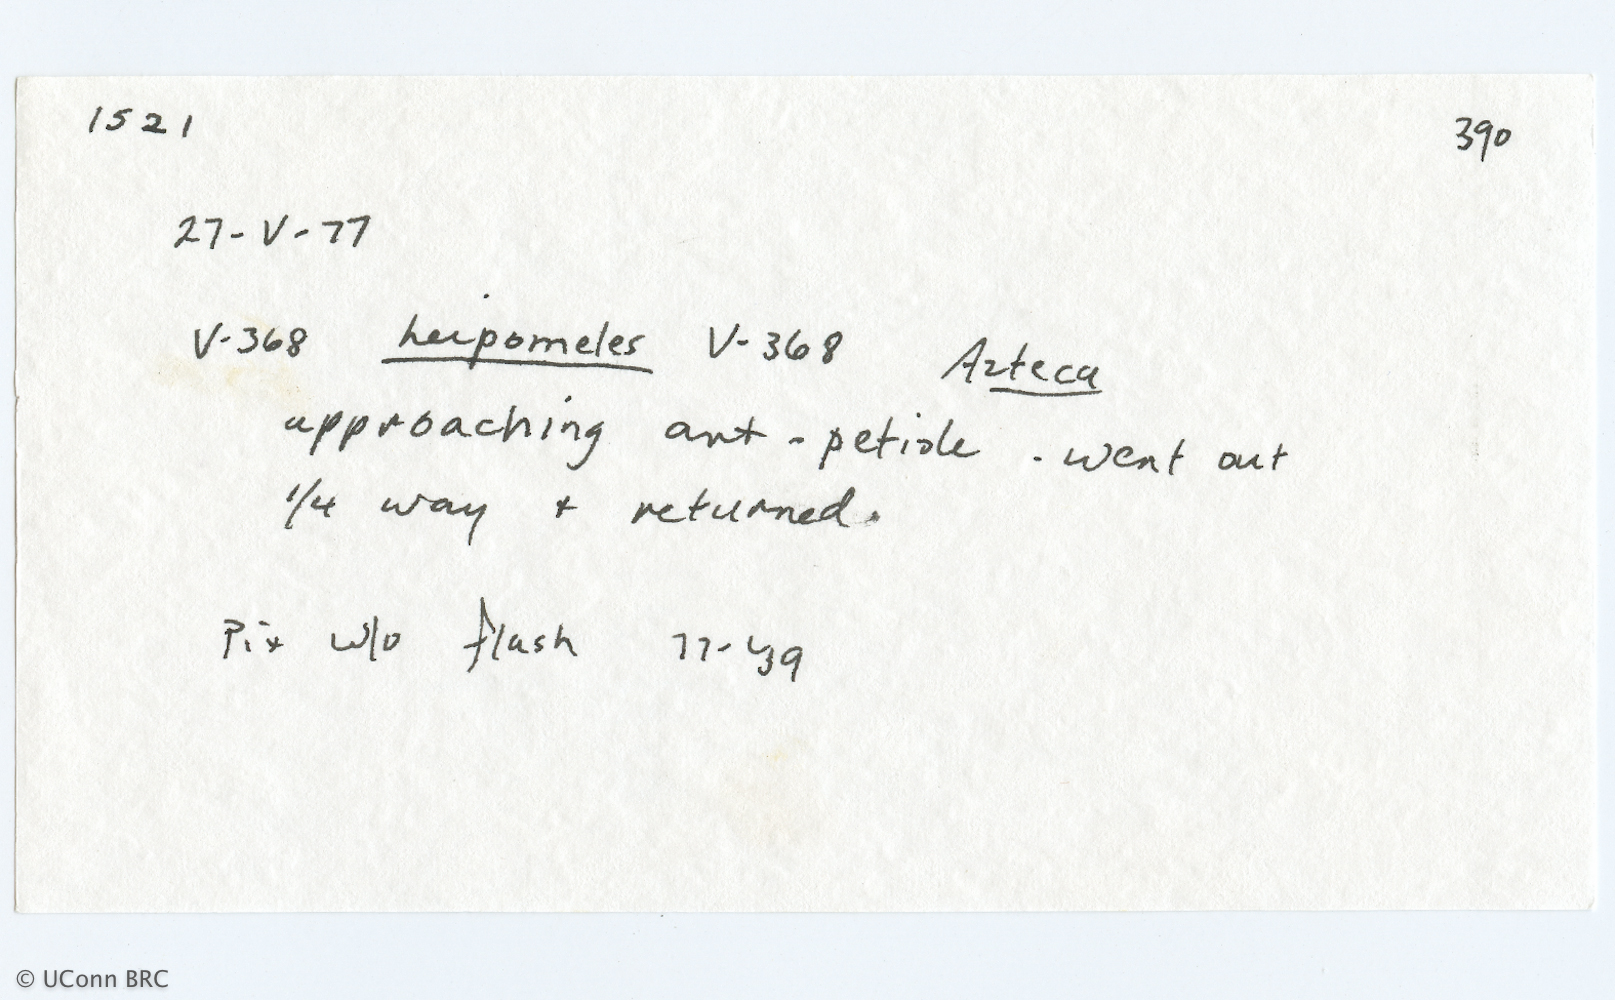 1521 390
27-V-77
V-368 heipomeles V-368 Azteca
approaching ant - petiole . went out
1/4 way + returned.
Pix w/o flash 77-439
© UConn BRC